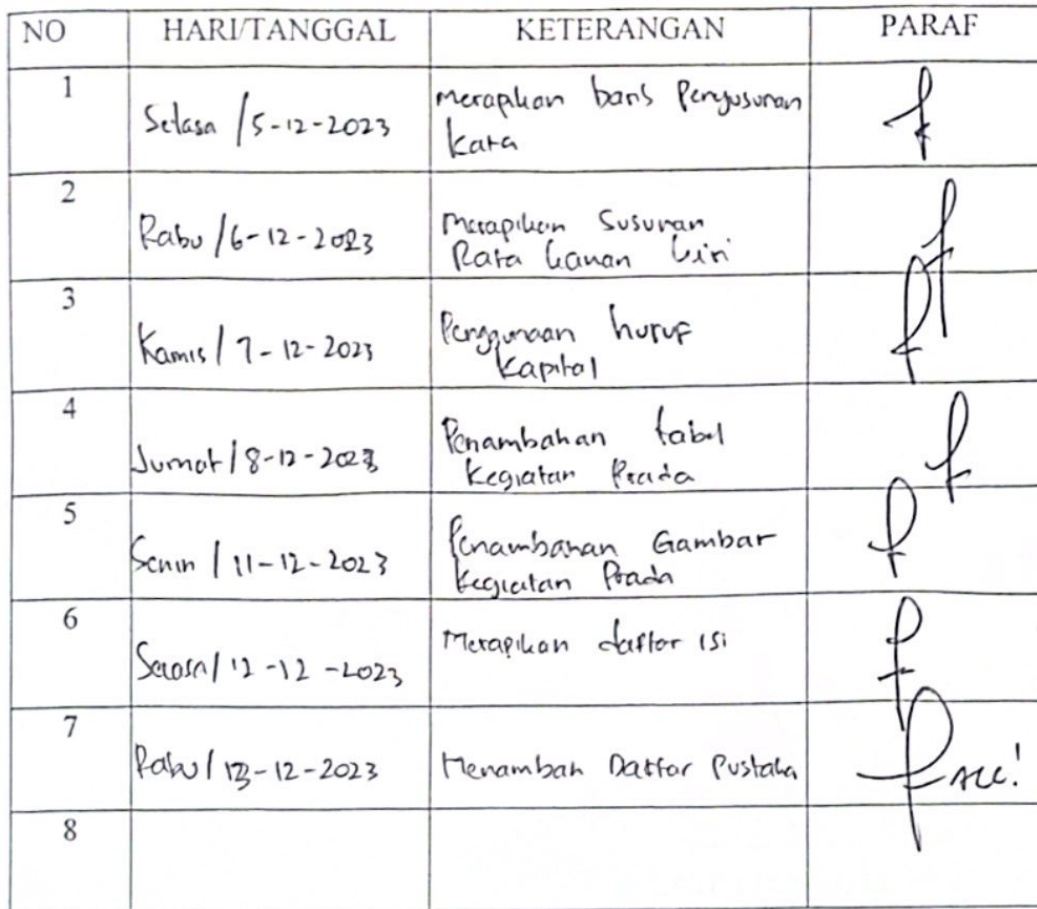 NO HARI/TANGGAL KETERANGAN PARAF
1
Selasa / 5-12-2023
Merapikan baris Penyusunan
kata
2
Rabu / 6-12-2023
Merapikan Susunan
Rata kanan kiri
3
Kamis / 7-12-2023
Penggunaan huruf
Kapital
4
Jumat / 8-12-2023
Penambahan tabel
Kegiatan Prada
5
Senin / 11-12-2023
Penambahan Gambar
Kegiatan Prada
6
Selasa / 12-12-2023
Merapikan daftar isi
7
Rabu / 13-12-2023
Menambah Daftar Pustaka
ACC!
8